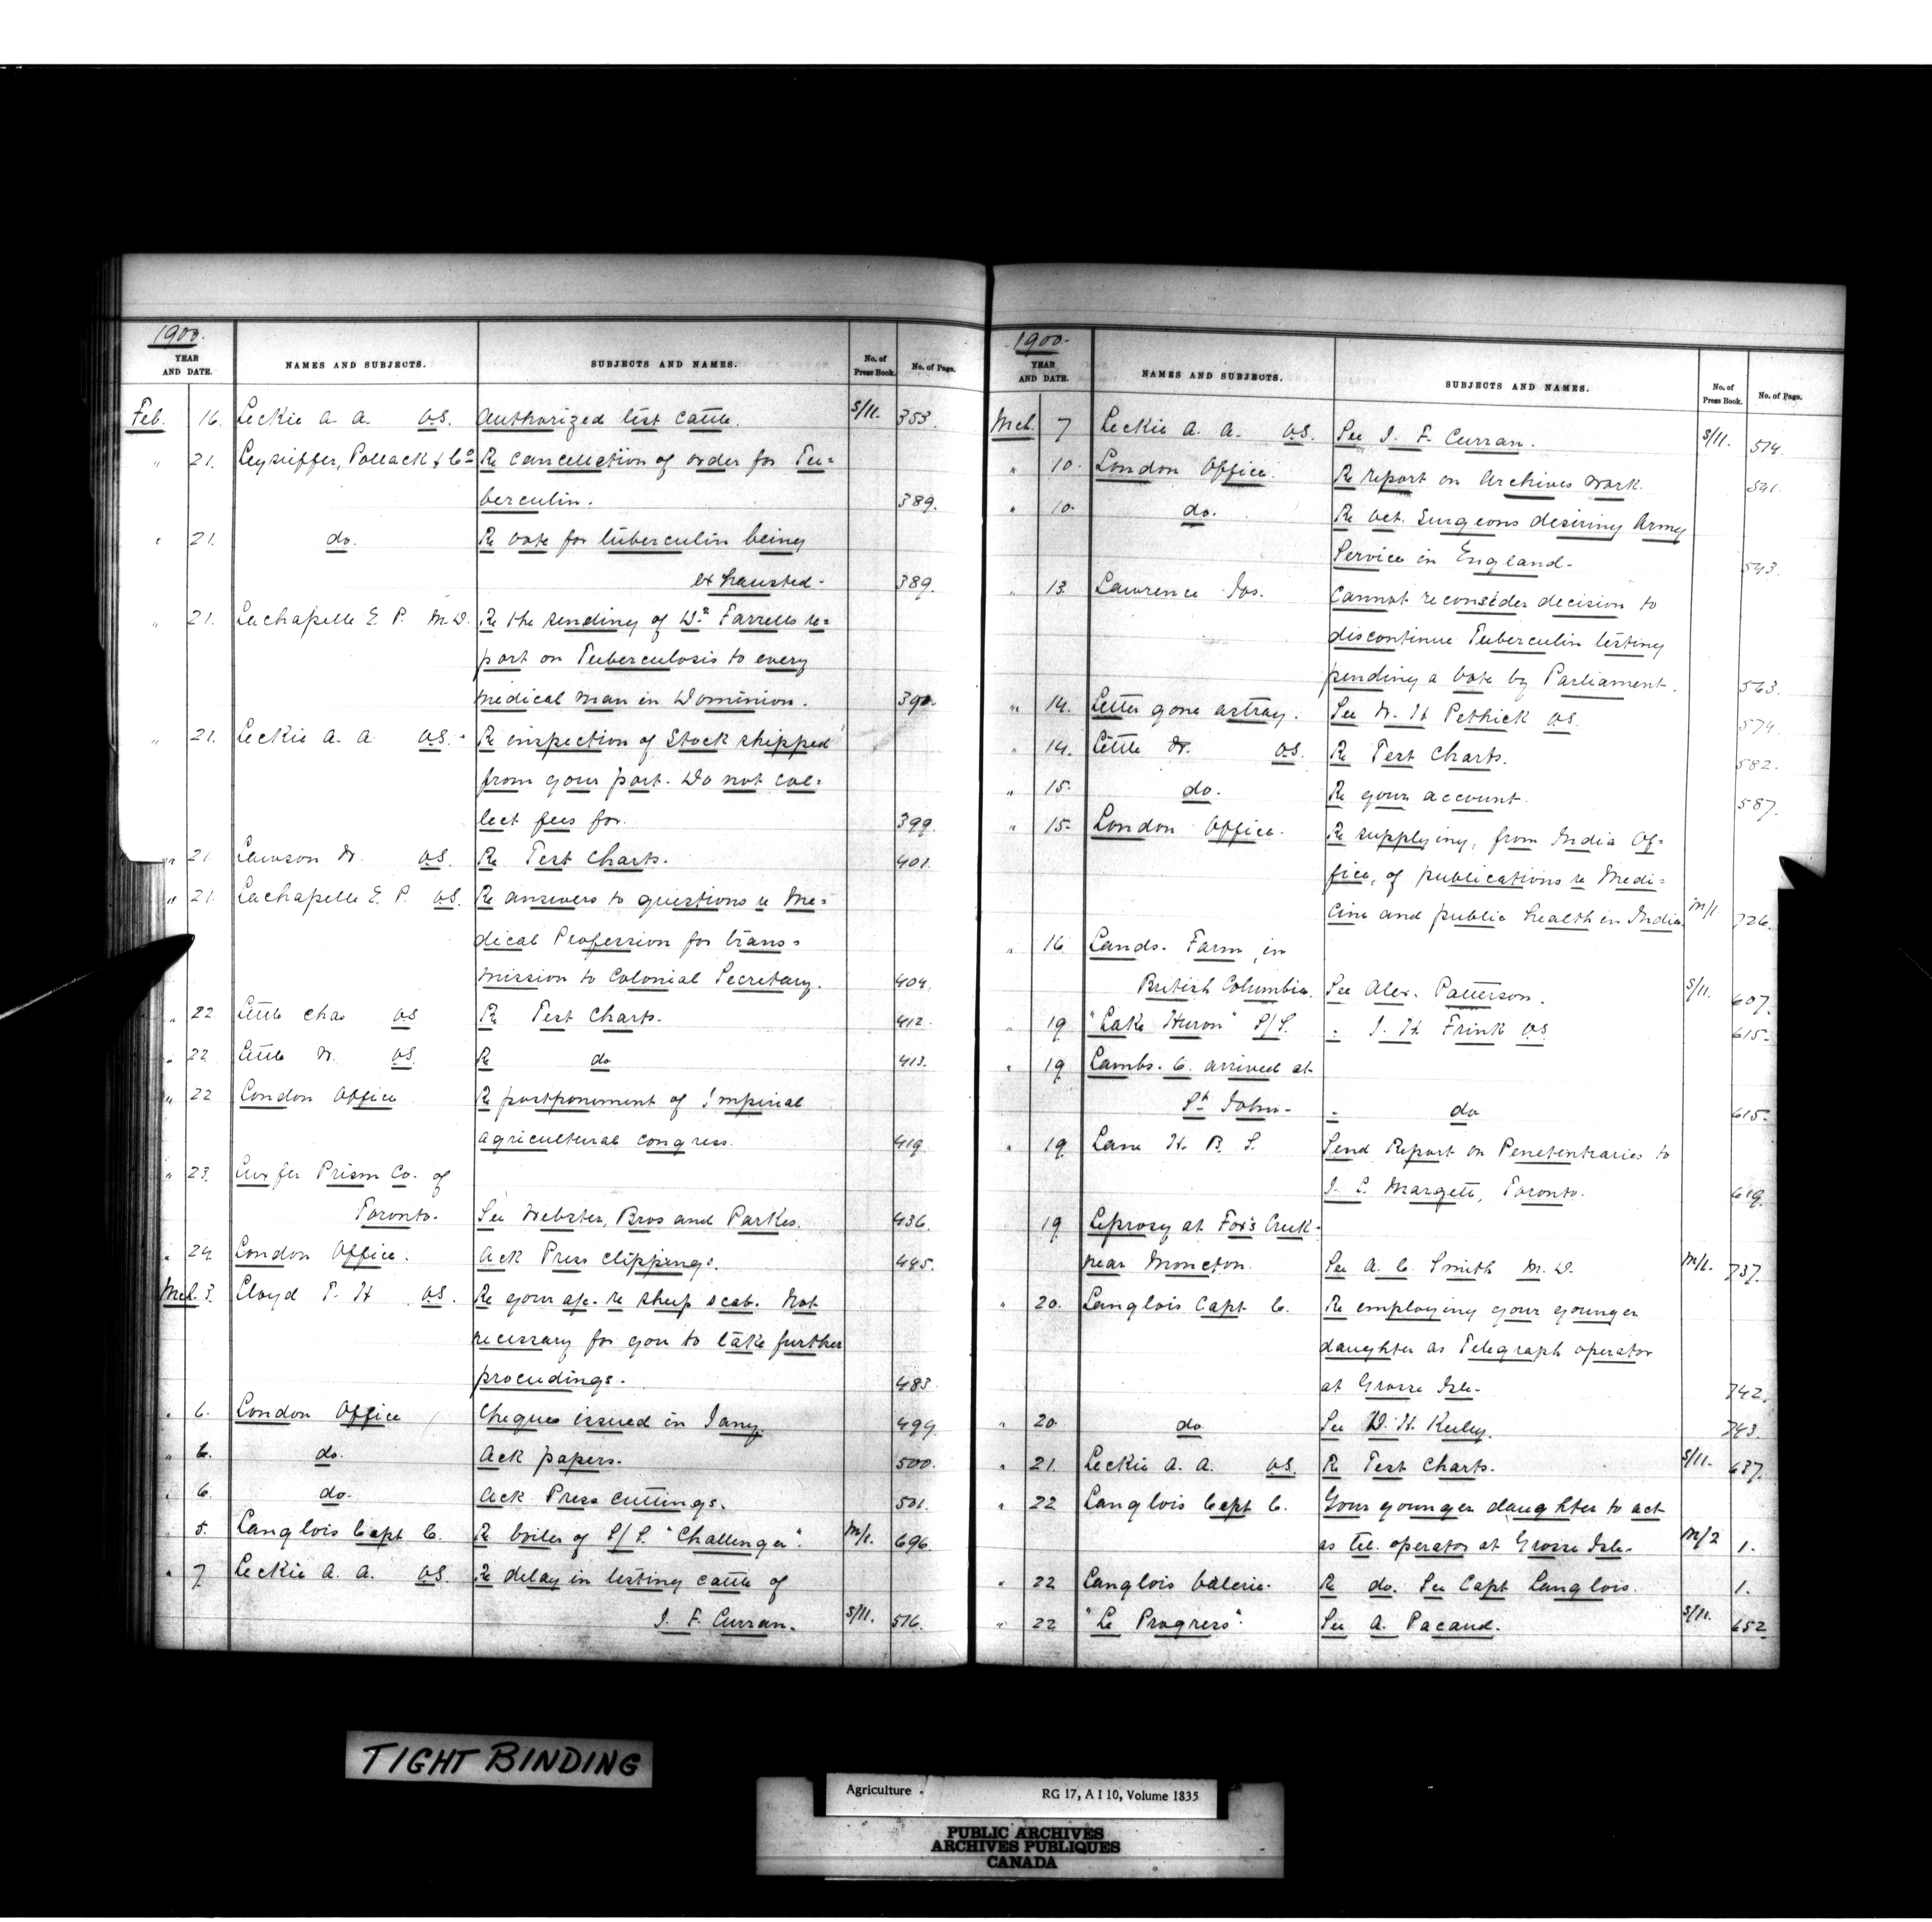 1900.
YEAR AND DATE. NAMES AND SUBJECTS. SUBJECTS AND NAMES. No. of Press Book. No. of Page.
Feb. 16. Leckie A. A. V.S. Authorized test cattle. S/11. 353.
" 21. Leyseiffer, Pollack & Co Re cancellation of order for Tu=
berculin. 389.
" 21. do. Re vote for tuberculin being
exhausted. 389.
" 21. Lachapelle E. P. M.D. Re the sending of Dr. Farrells re=
port on Tuberculosis to every
medical man in Dominion. 390.
" 21. Leckie A. A. V.S. Re inspection of Stock shipped
from your port. Do not col=
lect fees for. 399.
" 21. Lawson W. V.S. Re Test Charts. 401.
" 21. Lachapelle E. P. V.S. Re answers to questions re Me=
dical Profession for trans=
mission to Colonial Secretary. 404.
" 22. Little Chas V.S. Re Test Charts. 412.
" 22. Little W. V.S. Re do 413.
" 22 London Office Re postponement of Imperial
agricultural congress. 419.
" 23. Luxfer Prism Co. of
Toronto. See Webster, Bros and Parkes. 436.
" 24. London Office. Ack Press clippings. 445.
Mch. 3. Lloyd T. H V.S. Re your a/c. re sheep scab. Not
necessary for you to take further
proceedings. 483.
" 6. London Office Cheques issued in Jany. 499.
" 6. do. Ack papers. 500.
" 6. do. Ack Press cuttings. 501.
" 5. Langlois Capt C. Re boiler of S/S. "Challenger". M/1. 696.
" 7. Leckie A. A. V.S. Re delay in testing cattle of
J. F. Curran. S/11. 516.
1900.
YEAR AND DATE. NAMES AND SUBJECTS. SUBJECTS AND NAMES. No. of Press Book. No. of Page.
Mch. 7 Leckie A. A. V.S. See J. F. Curran. S/11. 514.
" 10. London Office. Re report on Archives work. 541.
" 10. do. Re Vet. Surgeons desiring Army
Service in England. 543.
" 13. Lawrence Jos. Cannot reconsider decision to
discontinue Tuberculin testing
pending a vote by Parliament. 563.
" 14. Letter gone astray. See W. H Pethick V.S. 574.
" 14. Little W. V.S. Re Test Charts. 582.
" 15. do. Re your account. 587.
" 15. London Office. Re supplying, from India Of=
fice, of publications re Medi=
cine and public health in India. M/1. 726.
" 16 Lands. Farm, in
British Columbia. See Alex. Patterson. S/11. 607.
" 19 "Lake Huron" S/S. " J. H. Frink V.S 615.
" 19 Lambs. 6. arrived at
St. John. " do 615.
" 19 Lane H. B. S. Send Report on Penetentiaries to
J. S. Margett, Toronto. 619.
19 Leprosy at Fox's Creek.
near Moncton. See A. C. Smith M.D. M/1. 737.
" 20. Langlois Capt C. Re employing your younger
daughter as Telegraph operator
at Grosse Isle. 742.
" 20. do See D. H. Keeley. 743.
" 21. Leckie A. A. V.S. Re Test Charts. S/11. 637.
" 22 Langlois Capt C. Your younger daughter to act
as tel. operator at Grosse Isle. M/2 1.
" 22 Langlois Valerie. Re do. See Capt Langlois. 1.
" 22 "Le Progress". See A. Pacaud. S/11. 652
TIGHT BINDING
Agriculture RG 17, A I 10, Volume 1835
PUBLIC ARCHIVES
ARCHIVES PUBLIQUES
CANADA